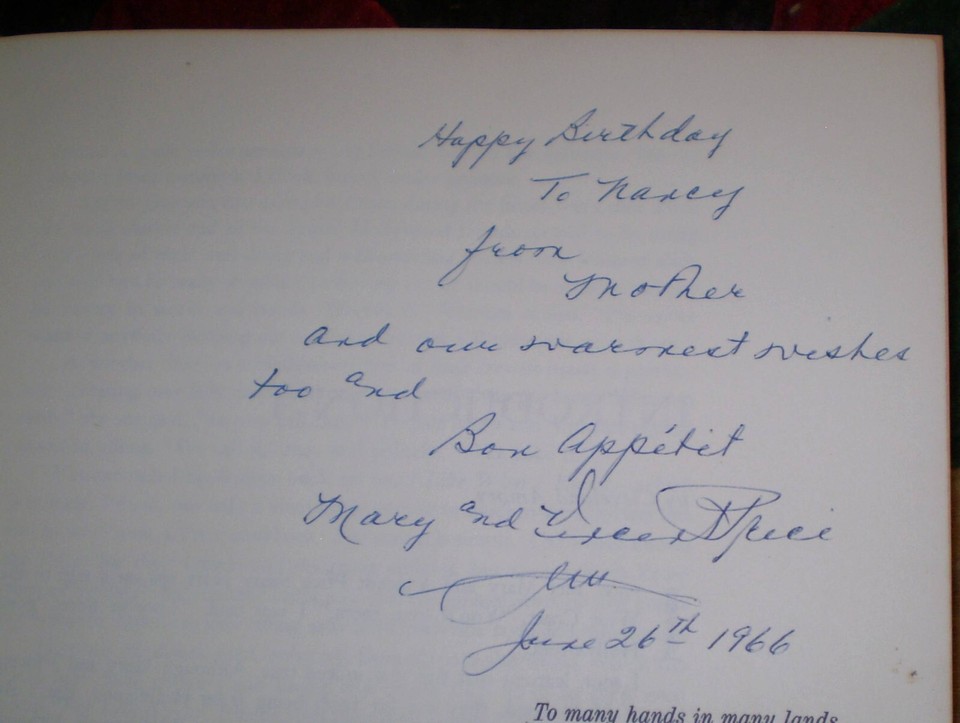 Happy Birthday
To Nancy
from
Mother
and our warmest wishes
too and
Bon Appétit
Mary and Vincent Price
June 26th 1966
To many hands in many lands